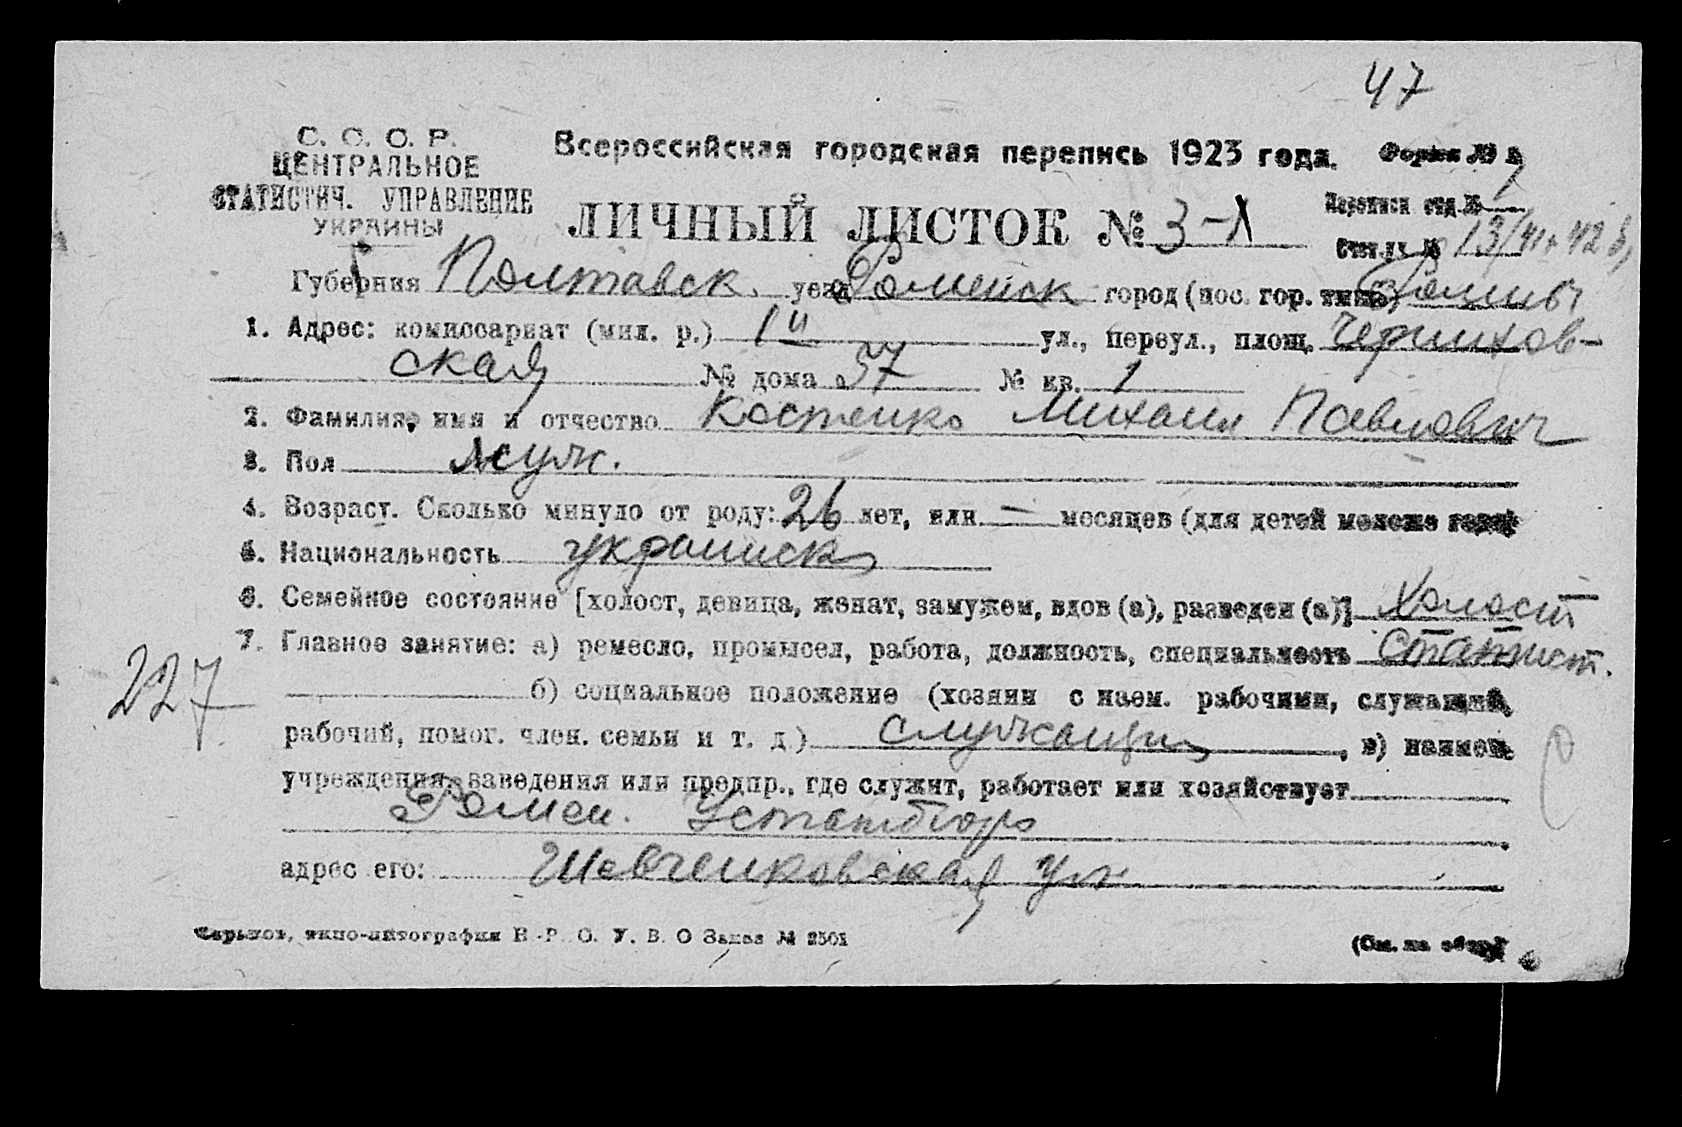 47
С. С. С. Р.
ЦЕНТРАЛЬНОЕ
СТАТИСТИЧ. УПРАВЛЕНИЕ
УКРАИНЫ
Всероссийская городская перепись 1923 года.
Форма № 2
ЛИЧНЫЙ ЛИСТОК № 3-1
Переписн отд. № 1
Счетн. уч. № 13/41+42 б,
Губерния Полтавск. уезд Роменск город (пос. гор. типа) Ромны
1. Адрес: комиссариат (мил. р.) 1й ул., переул., площ. Чернигов-
ская № дома 37 № кв. 1
2. Фамилия, имя и отчество Костенко Михаил Павлович
3. Пол муж.
4. Возраст. Сколько минуло от роду: 26 лет, или — месяцев (для детей моложе года)
5. Национальность украинск
6. Семейное состояние [холост, девица, женат, замужем, вдов (а), разведен (а)] Холост
7. Главное занятие: а) ремесло, промысел, работа, должность, специальность Статист.
227
б) социальное положение (хозяин с наем. рабочими, служащий,
рабочий, помог. член. семьи и т. д.) служащий, в) наимен.
учреждения, заведения или предпр., где служит, работает или хозяйствует
Ромен. Устатбюро
адрес его: Шевченковская ул
Харьков, типо-литография В.-Р. О. У. В. О Заказ № 2501
(См. на обор.)